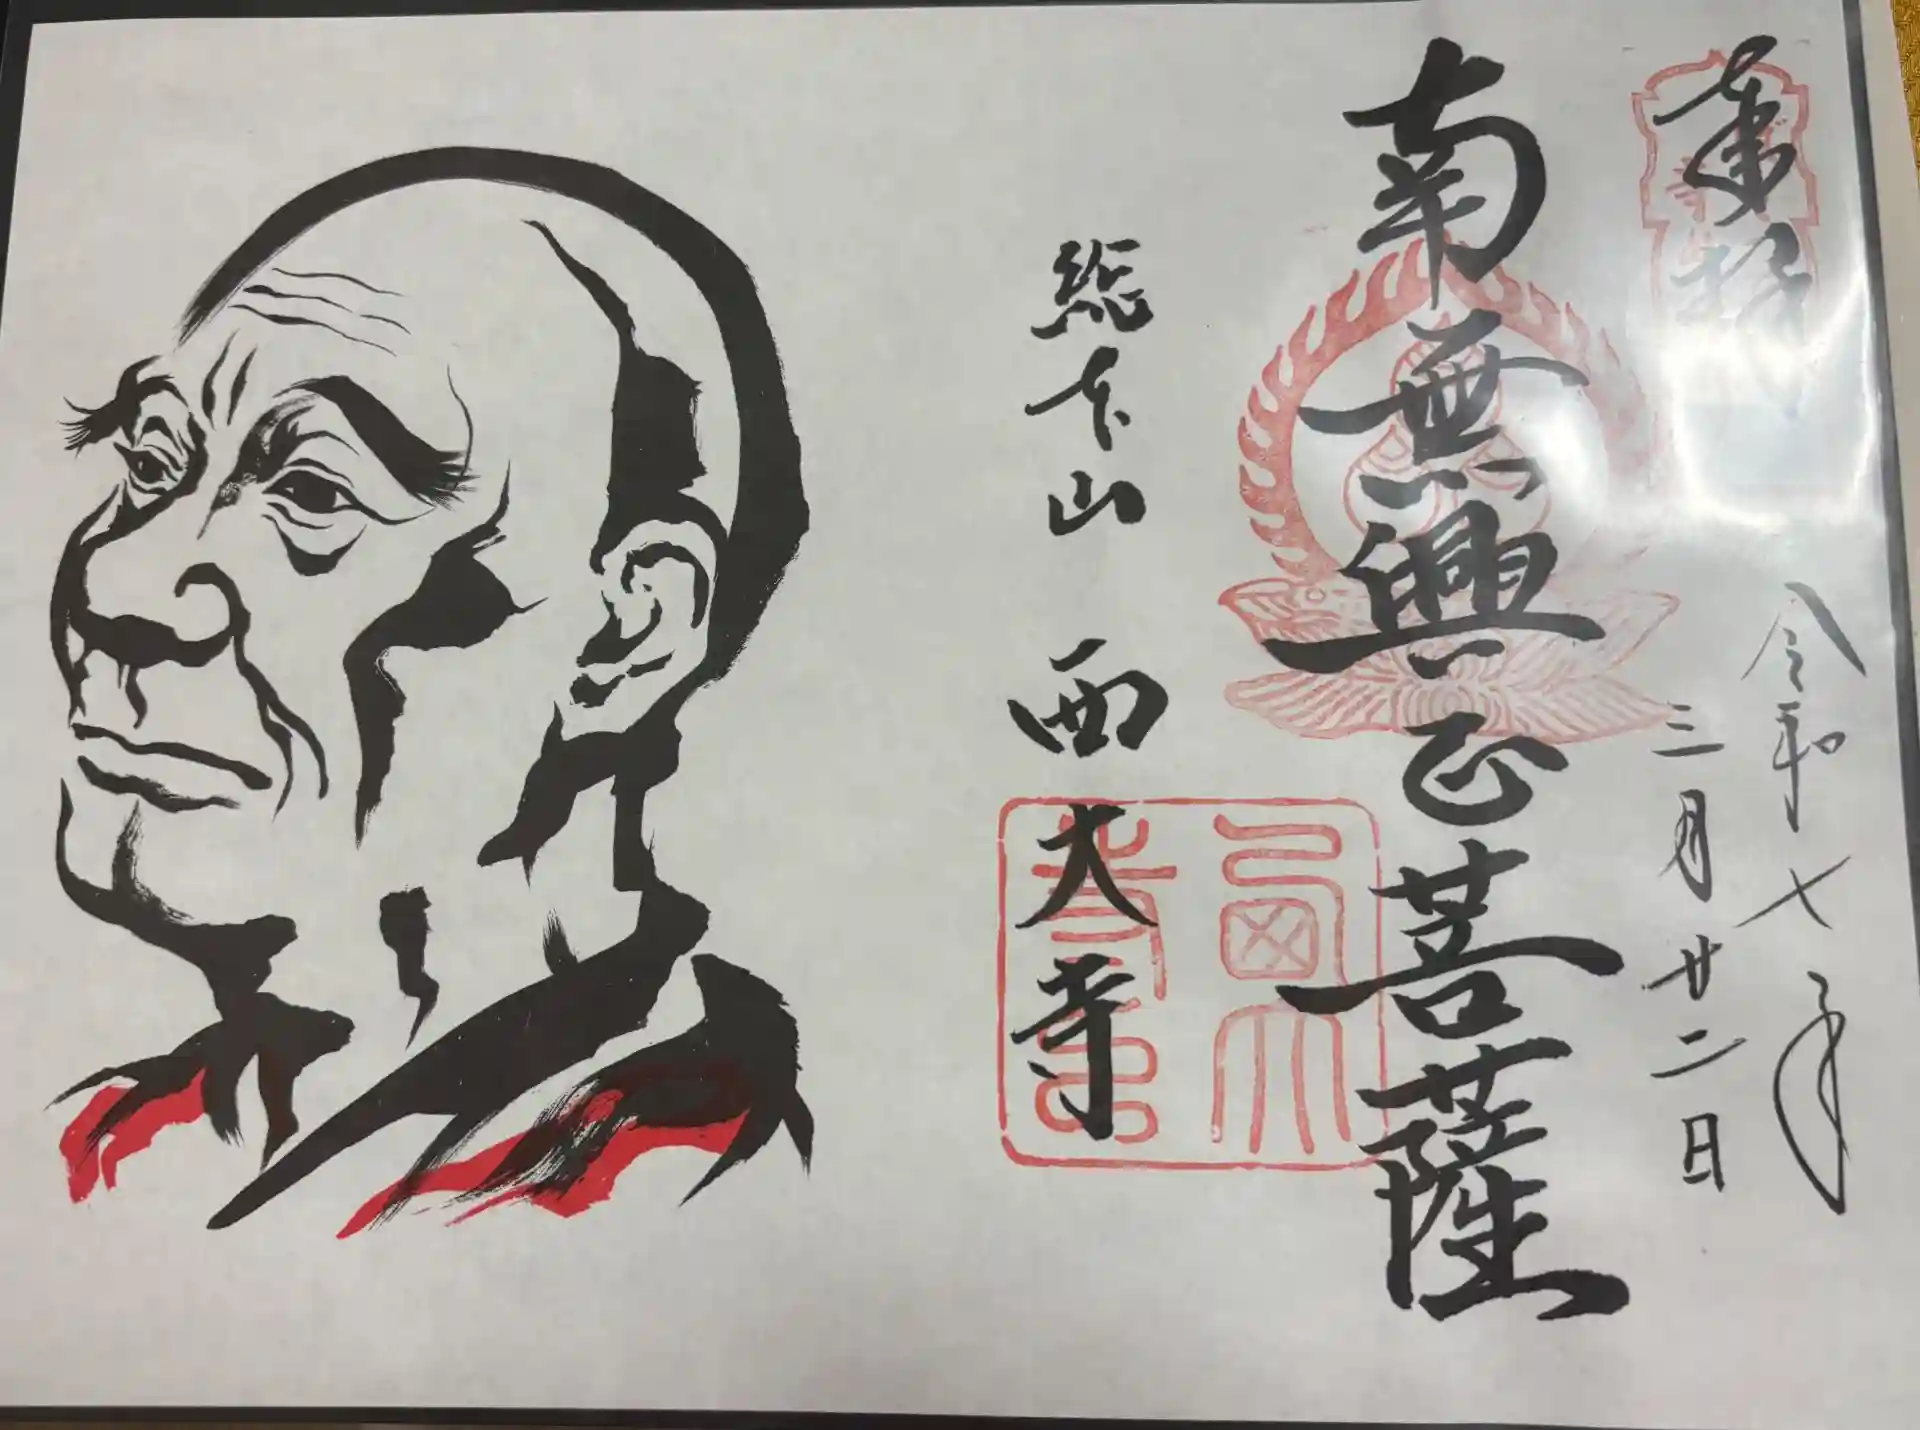 奉拝
令和七年
三月廿二日
南無興正菩薩
総本山 西大寺